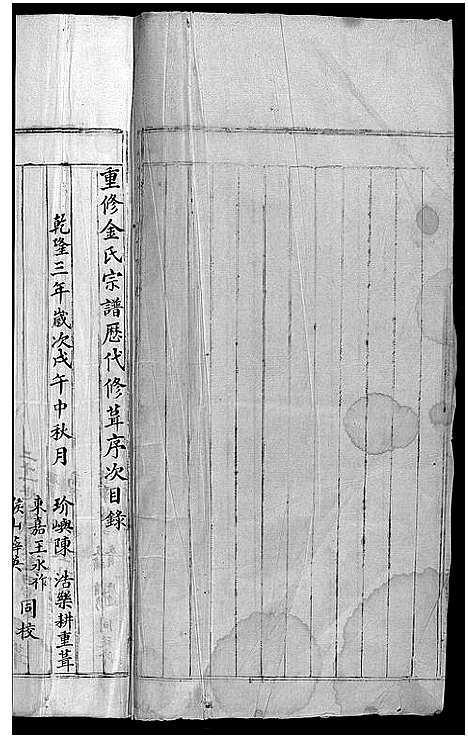 重修金氏宗譜歷代修葺序次目錄
乾隆三年歲次戊午中秋月
玠嶼陳 浩樂耕重葺
東嘉王永祚
同校